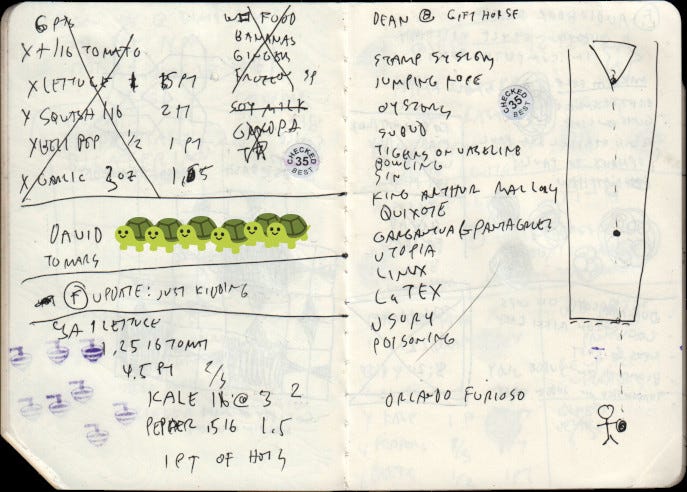 6 PK
X + 1/16 TOMATO
X LETTUCE 1 15 PT
X SQUASH 1/6 2 PT
X BELL PEP 1/2 1 PT
X GARLIC 3 OZ 1,55
FOOD
BANANAS
GINGER
SOY MILK
CHECKED
35
BEST
DAVID
TO MARS
F UPDATE: JUST KIDDING
LETTUCE
1,25 16 TOMT
4.5 PT 2/3
KALE 16 @ 3 2
PEPPER 1516 1.5
1 PT OF HOTS
DEAN @ GIFT HORSE
STAMP SYSTEM
JUMPING ROPE
OYSTERS
SUBUD
TIGERS OF
BOWLING
SIN
KING ARTHUR MALLORY
QUIXOTE
GARGANTUA & PANTAGRUEL
UTOPIA
LINUX
LaTEX
USURY
POISONING
ORLANDO FURIOSO
CHECKED
35
BEST